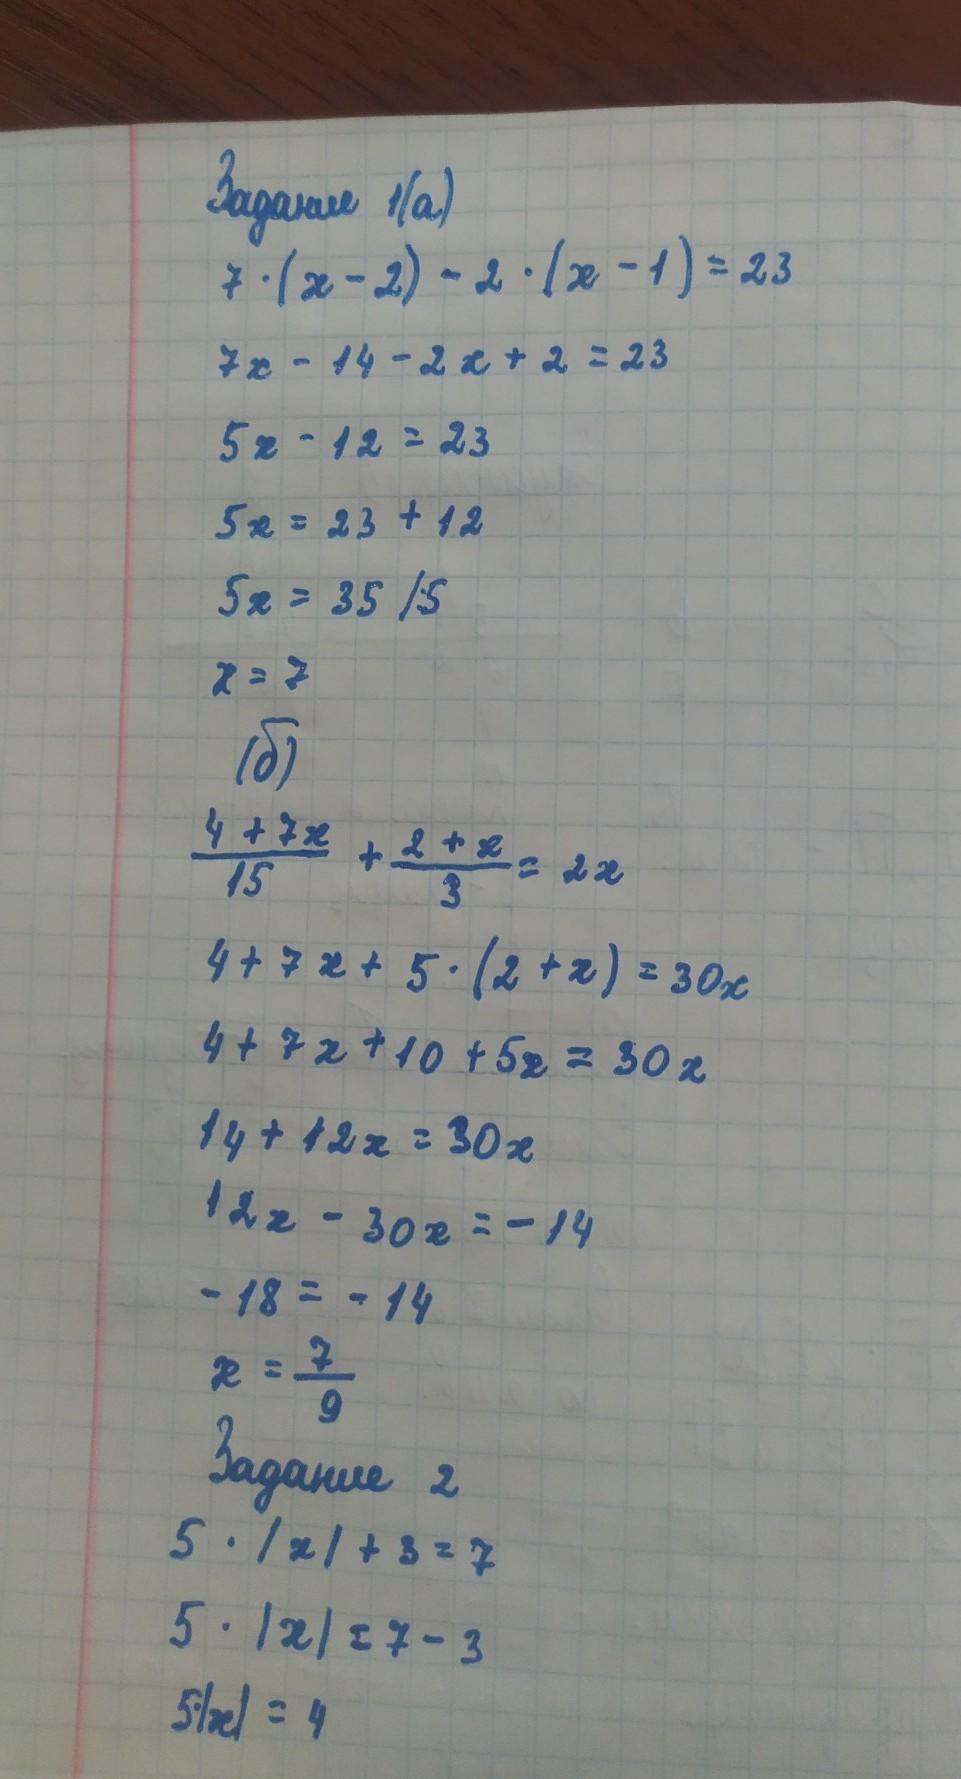 Задание 1(а)
7·(x-2)-2·(x-1)=23
7x-14-2x+2=23
5x-12=23
5x=23+12
5x=35/:5
x=7
(б)
4+7x/15 + 2+x/3 = 2x
4+7x+5·(2+x)=30x
4+7x+10+5x=30x
14+12x=30x
12x-30x=-14
-18=-14
x=7/9
Задание 2
5·|x|+3=7
5·|x|=7-3
5·|x|=4